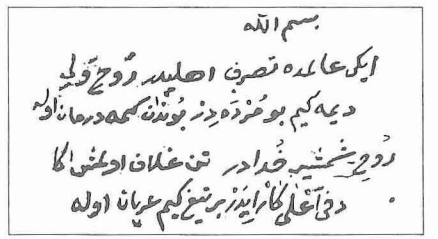 بسم الله
ایکی عالمده تصرف اهلیدر رُوحِ وَلی
دیمه کیم بو مُرْدَه دِرْ بُونْدَنْ نیجه درمان اوله
رُوحِ شمشیر خُدادر تن غلاف اولمش اکا
دخی اَعْلٰی کارْ اِیدَرْ بر تیغ کیم عریان اوله